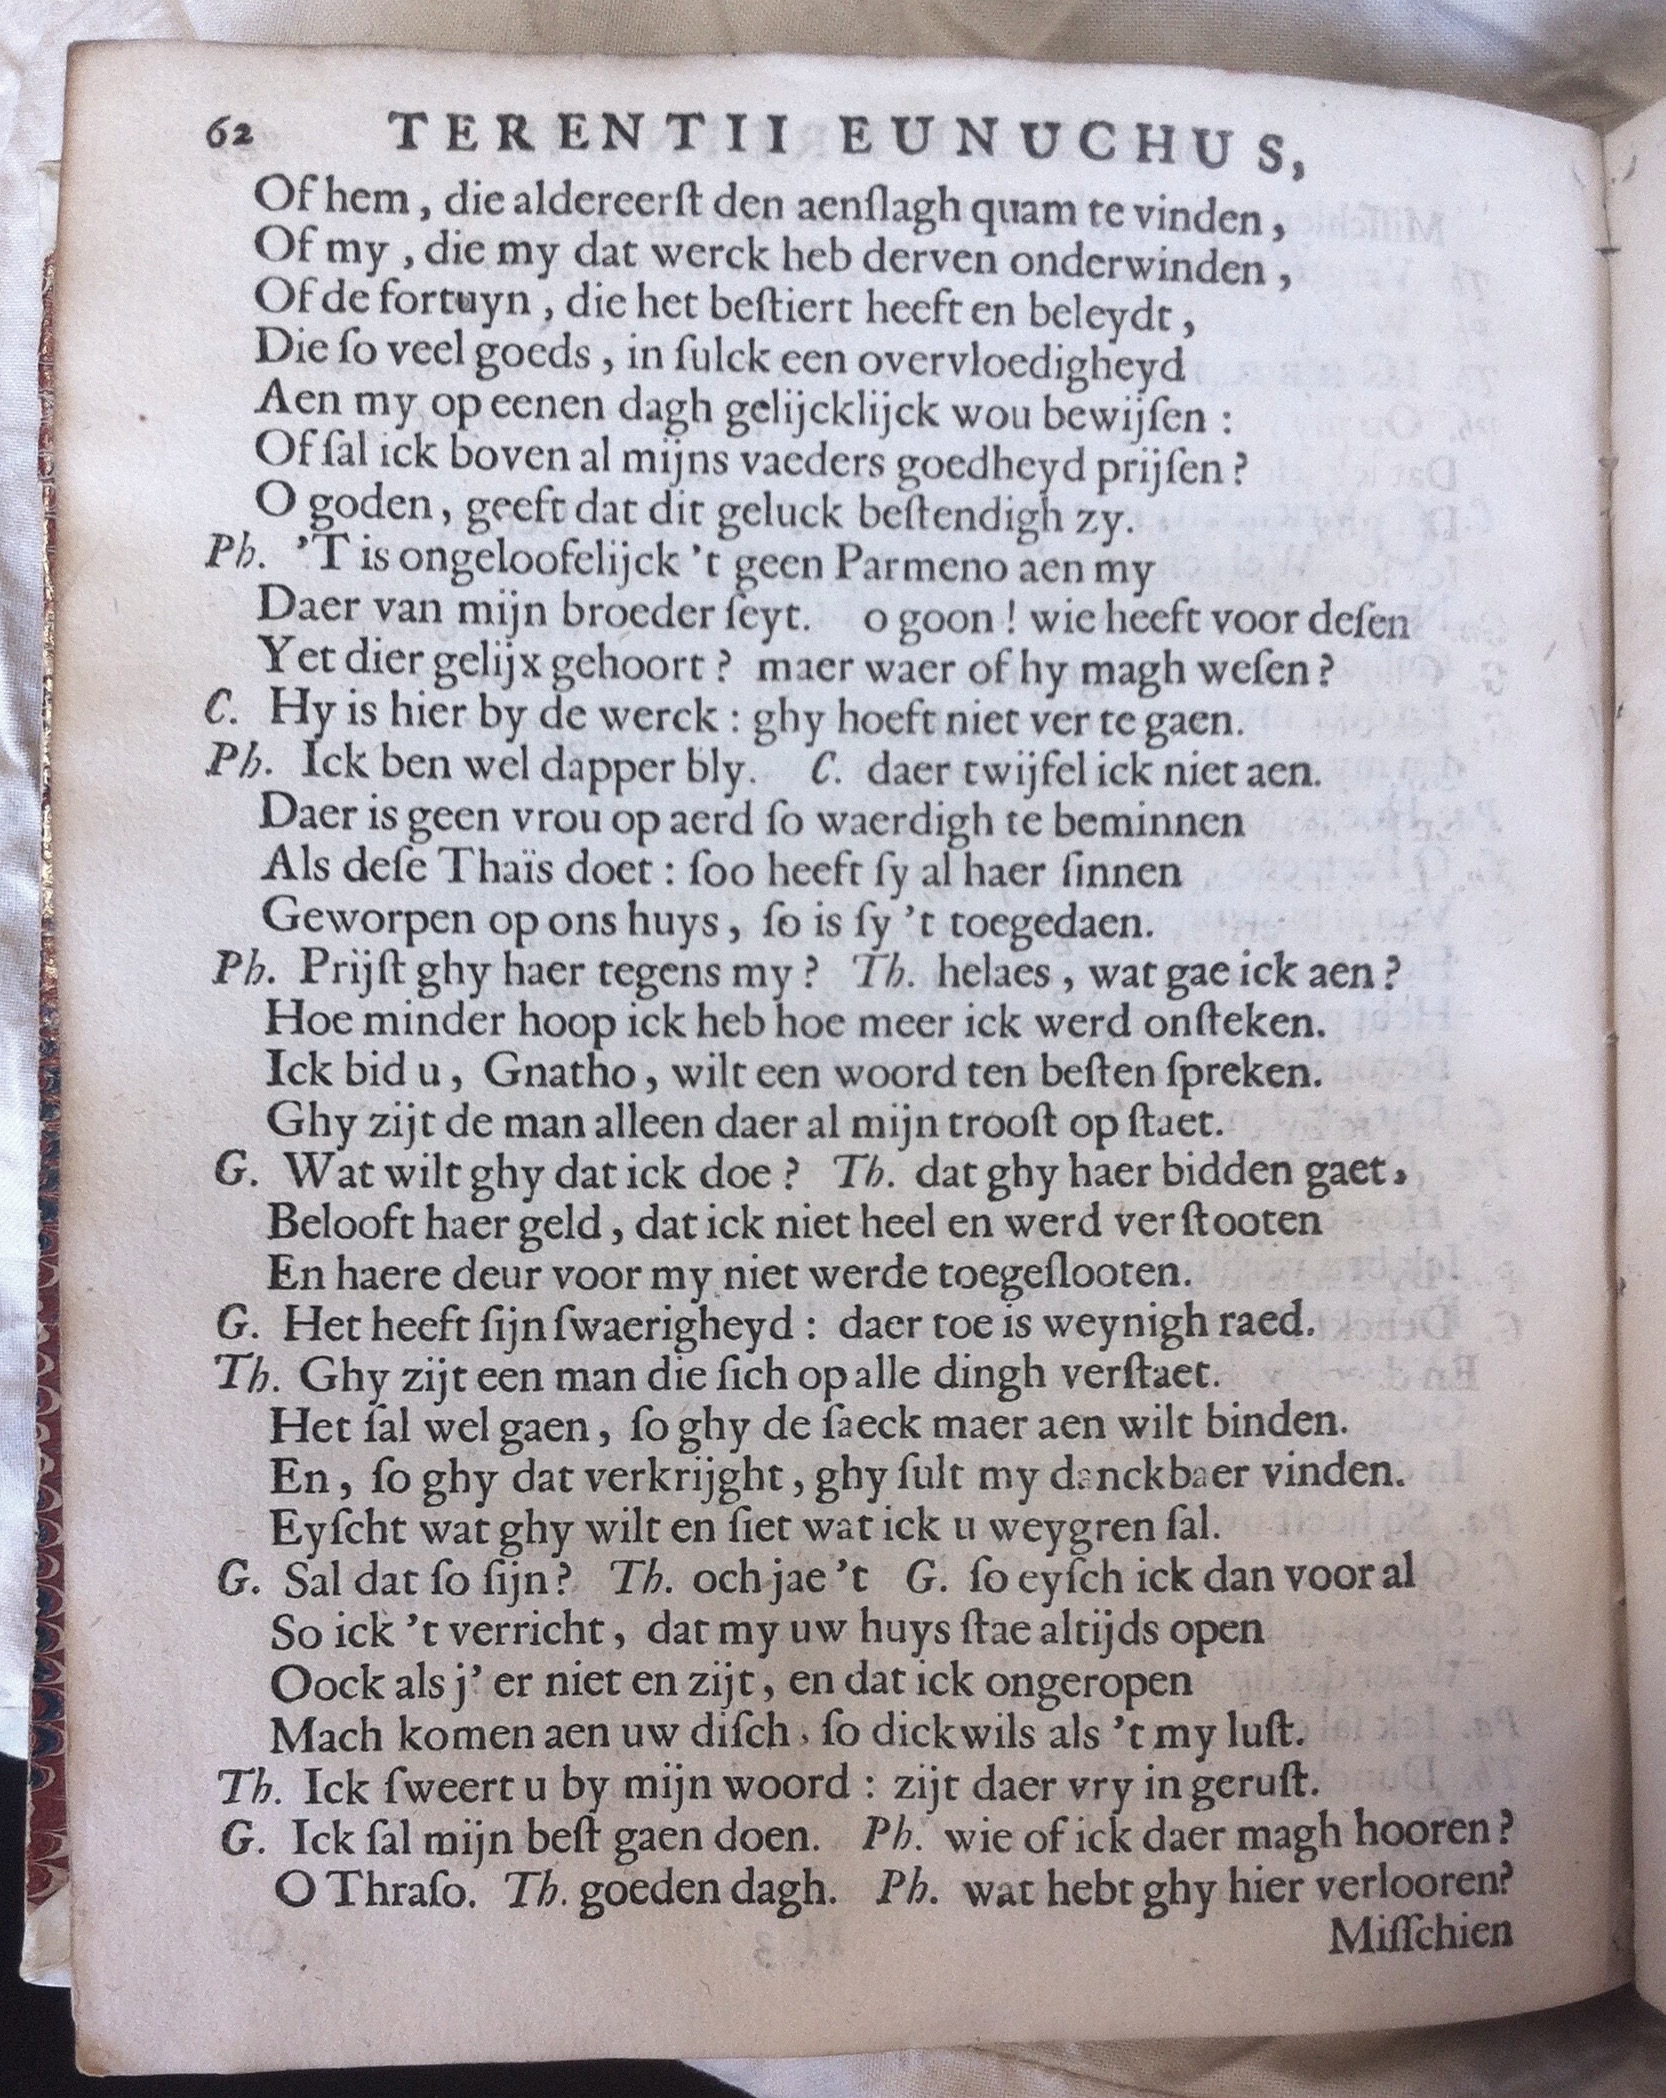 62 TERENTII EUNUCHUS,
Of hem, die aldereerſt den aenſlagh quam te vinden,
Of my, die my dat werck heb derven onderwinden,
Of de fortuyn, die het beſtiert heeft en beleydt,
Die ſo veel goeds, in ſulck een overvloedigheyd
Aen my op eenen dagh gelijcklijck wou bewijſen:
Of ſal ick boven al mijns vaeders goedheyd prijſen?
O goden, geeft dat dit geluck beſtendigh zy.
Ph. 'T is ongeloofelijck 't geen Parmeno aen my
Daer van mijn broeder ſeyt. o goon! wie heeft voor deſen
Yet dier gelijx gehoort? maer waer of hy magh weſen?
C. Hy is hier by de werck: ghy hoeft niet ver te gaen.
Ph. Ick ben wel dapper bly. C. daer twijfel ick niet aen.
Daer is geen vrou op aerd ſo waerdigh te beminnen
Als deſe Thaïs doet: ſoo heeft ſy al haer ſinnen
Geworpen op ons huys, ſo is ſy 't toegedaen.
Ph. Prijſt ghy haer tegens my? Th. helaes, wat gae ick aen?
Hoe minder hoop ick heb hoe meer ick werd onſteken.
Ick bid u, Gnatho, wilt een woord ten beſten ſpreken.
Ghy zijt de man alleen daer al mijn trooſt op ſtaet.
G. Wat wilt ghy dat ick doe? Th. dat ghy haer bidden gaet,
Belooft haer geld, dat ick niet heel en werd verſtooten
En haere deur voor my niet werde toegeſlooten.
G. Het heeft ſijn ſwaerigheyd: daer toe is weynigh raed.
Th. Ghy zijt een man die ſich op alle dingh verſtaet.
Het ſal wel gaen, ſo ghy de ſaeck maer aen wilt binden.
En, ſo ghy dat verkrijght, ghy ſult my danckbaer vinden.
Eyſcht wat ghy wilt en ſiet wat ick u weygren ſal.
G. Sal dat ſo ſijn? Th. och jae 't G. ſo eyſch ick dan voor al
So ick 't verricht, dat my uw huys ſtae altijds open
Oock als j' er niet en zijt, en dat ick ongeropen
Mach komen aen uw diſch, ſo dickwils als 't my luſt.
Th. Ick ſweert u by mijn woord: zijt daer vry in geruſt.
G. Ick ſal mijn beſt gaen doen. Ph. wie of ick daer magh hooren?
O Thraſo. Th. goeden dagh. Ph. wat hebt ghy hier verlooren?
Miſſchien